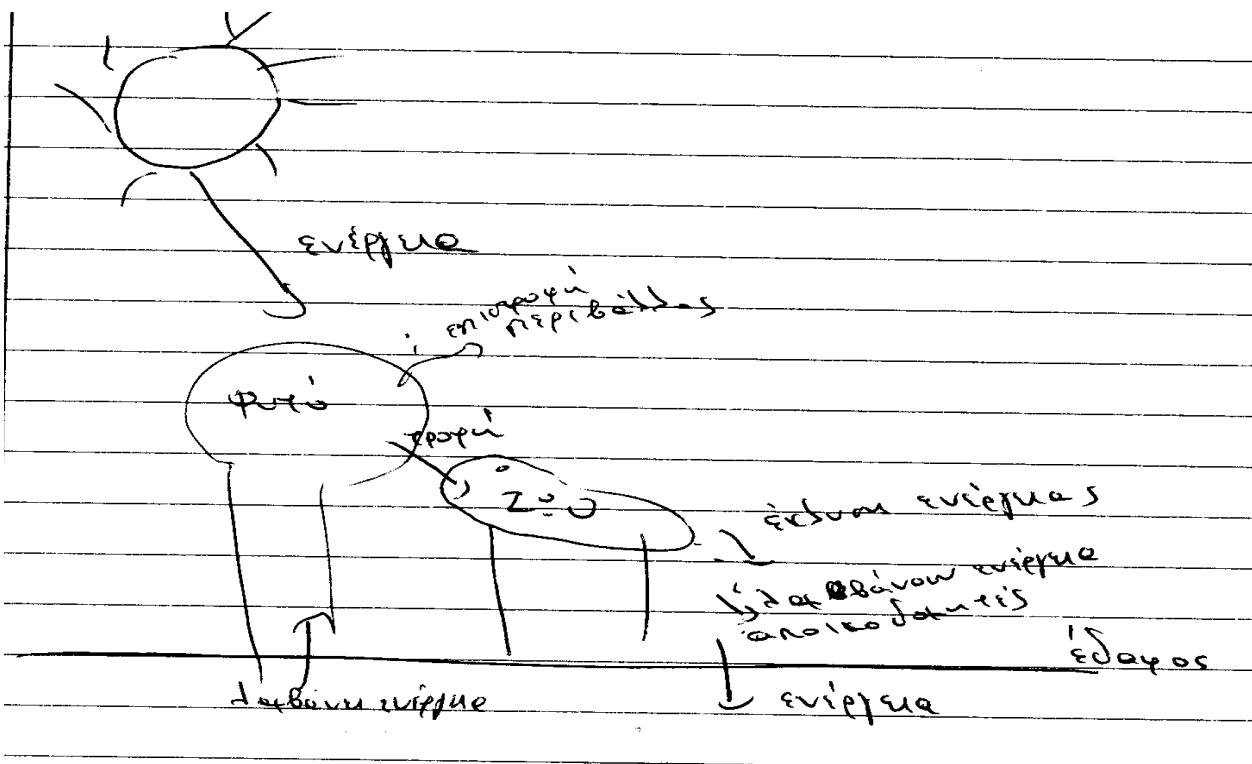 ενέργεια
επιστροφή
περιβάλλον
Φυτό
τροφή
Ζώο
έκλυση ενέργειας
λαμβάνουν ενέργεια
αποικοδομητές
έδαφος
λαμβάνει ενέργεια
ενέργεια